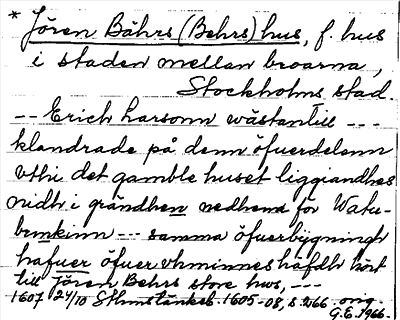 * Jören Bährs (Behrs) hus, f. hus
i staden mellan broarna,
Stockholms stad.
-- Erich Larsonn wästantill ---
klandrade på denn öfuerdelenn
vthi det gamble huset liggiandhes
nidh i grändhen nedhenn för Watu-
bunkinn --- samma öfuerbijgningh
hafuer öfuer vhminnes häfdh hört
till Jören Behrs store hws, ---
1607 24/10 Sthmstänkeb. 1605-08, s. 266 orig.
G.E. 1966.